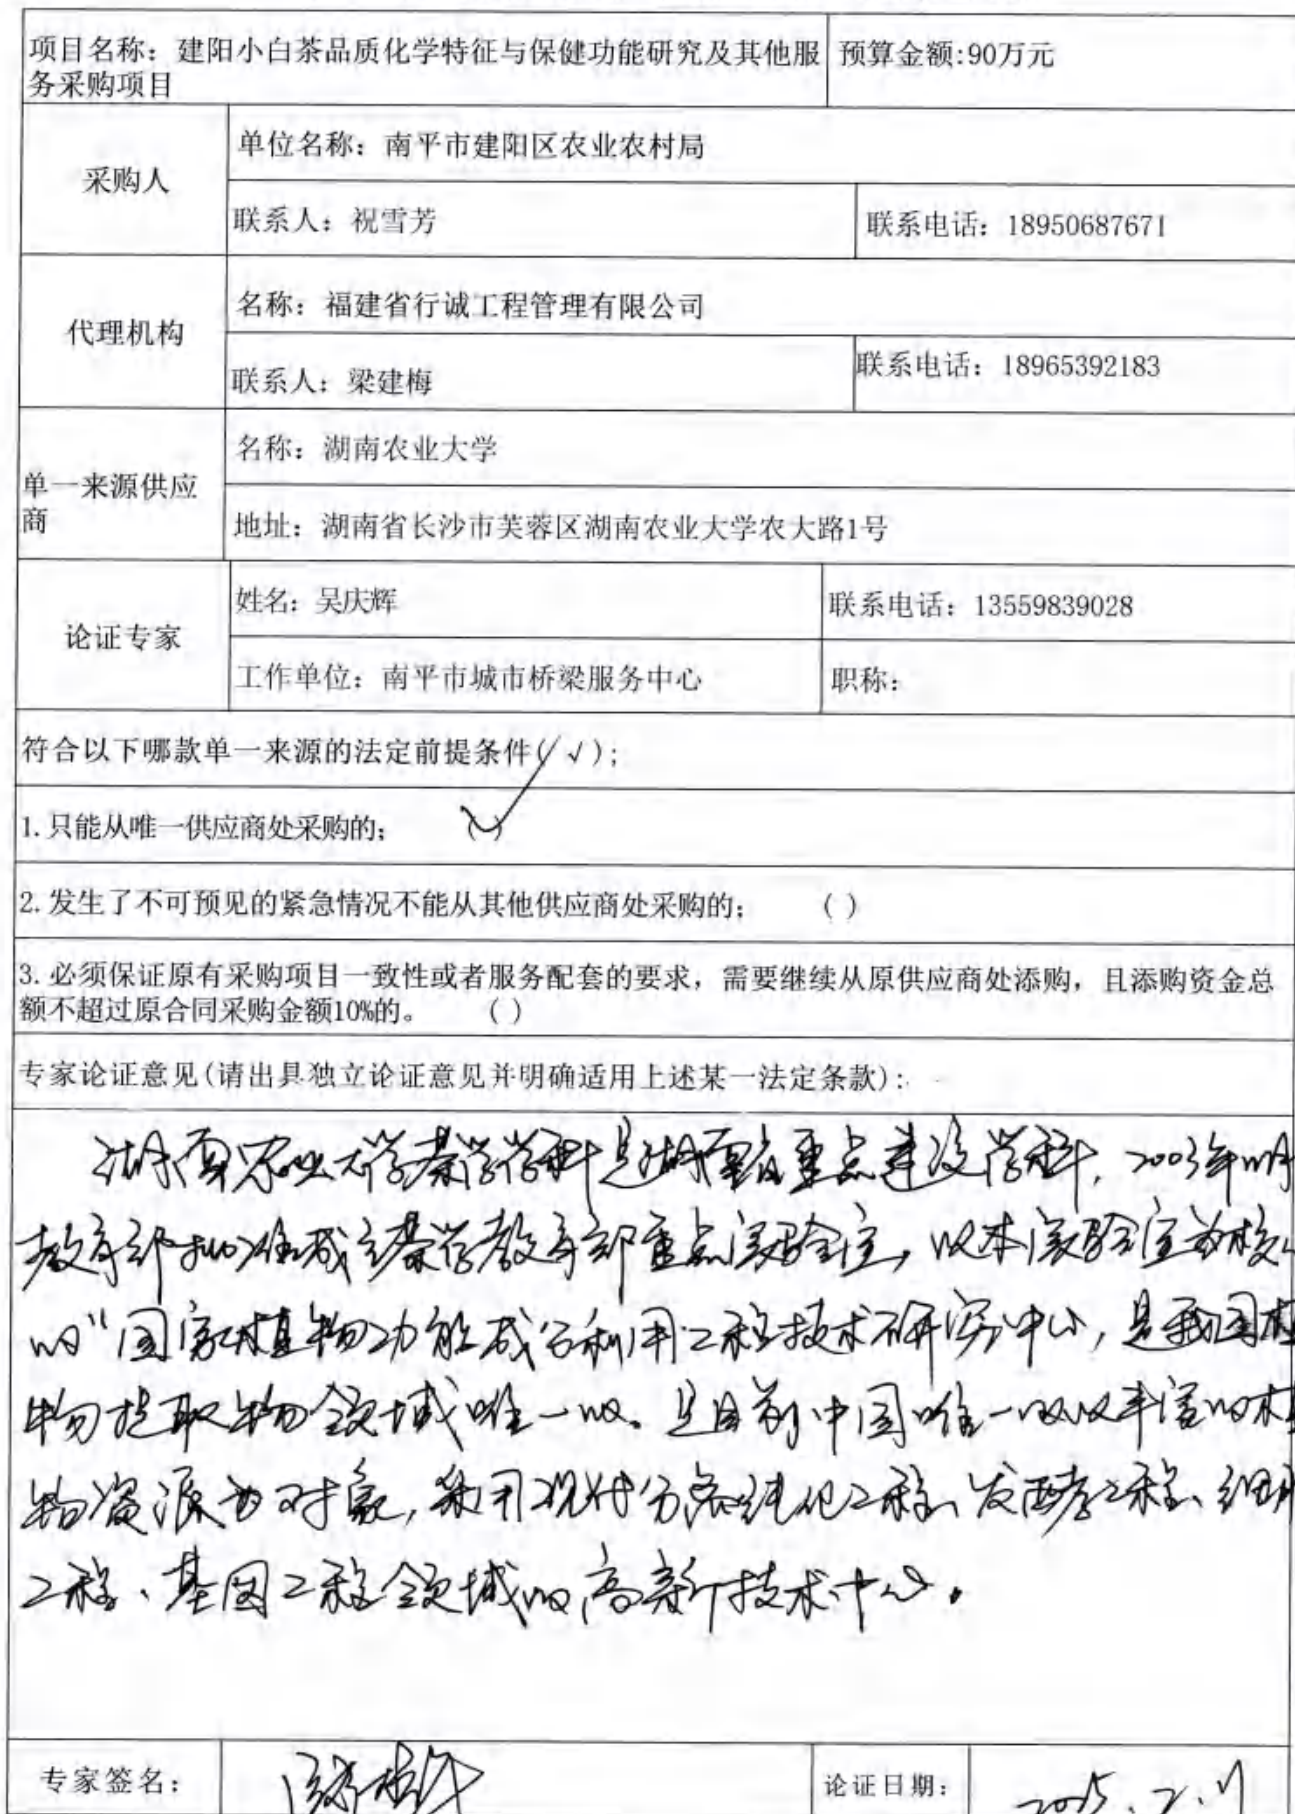 项目名称：建阳小白茶品质化学特征与保健功能研究及其他服
务采购项目
预算金额:90万元
采购人
单位名称：南平市建阳区农业农村局
联系人：祝雪芳
联系电话：18950687671
代理机构
名称：福建省行诚工程管理有限公司
联系人：梁建梅
联系电话：18965392183
单一来源供应
商
名称：湖南农业大学
地址：湖南省长沙市芙蓉区湖南农业大学农大路1号
论证专家
姓名：吴庆辉
联系电话：13559839028
工作单位：南平市城市桥梁服务中心
职称：
符合以下哪款单一来源的法定前提条件(√);
1.只能从唯一供应商处采购的； (√)
2.发生了不可预见的紧急情况不能从其他供应商处采购的； ( )
3.必须保证原有采购项目一致性或者服务配套的要求，需要继续从原供应商处添购，且添购资金总
额不超过原合同采购金额10%的。 ( )
专家论证意见(请出具独立论证意见并明确适用上述某一法定条款):
湖南农业大学茶学学科是湖南省重点建设学科，2003年
教育部批准成立茶学教育部重点实验室，以本实验室为核
的“国家植物功能成分利用工程技术研究中心，是我国植
物提取物领域唯一的。是目前中国唯一的以丰富的植
物资源为对象，采用现代分离纯化工程、发酵工程、细胞
工程、基因工程领域的高新技术中心。
专家签名：
论证日期：
2025.2.